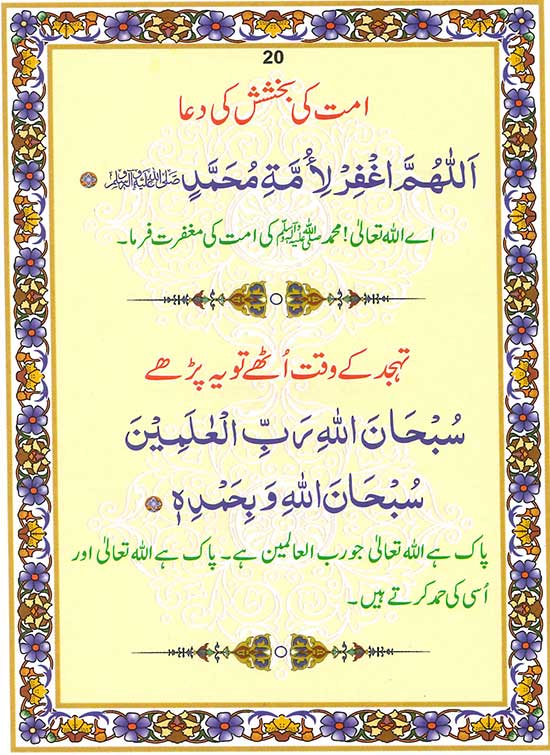 20
امت کی بخشش کی دعا
اَللّٰهُمَّ اغْفِرْ لِأُمَّةِ مُحَمَّدٍ صَلَّى اللهُ عَلَيْهِ وَآلِهٖ وَسَلَّمَ
اے اللہ تعالیٰ! محمد ﷺ کی امت کی مغفرت فرما۔
تہجد کے وقت اُٹھے تو یہ پڑھے
سُبْحَانَ اللهِ رَبِّ الْعٰلَمِيْنَ
سُبْحَانَ اللهِ وَبِحَمْدِهٖ
پاک ہے اللہ تعالیٰ جو رب العالمین ہے۔ پاک ہے اللہ تعالیٰ اور
اُسی کی حمد کرتے ہیں۔